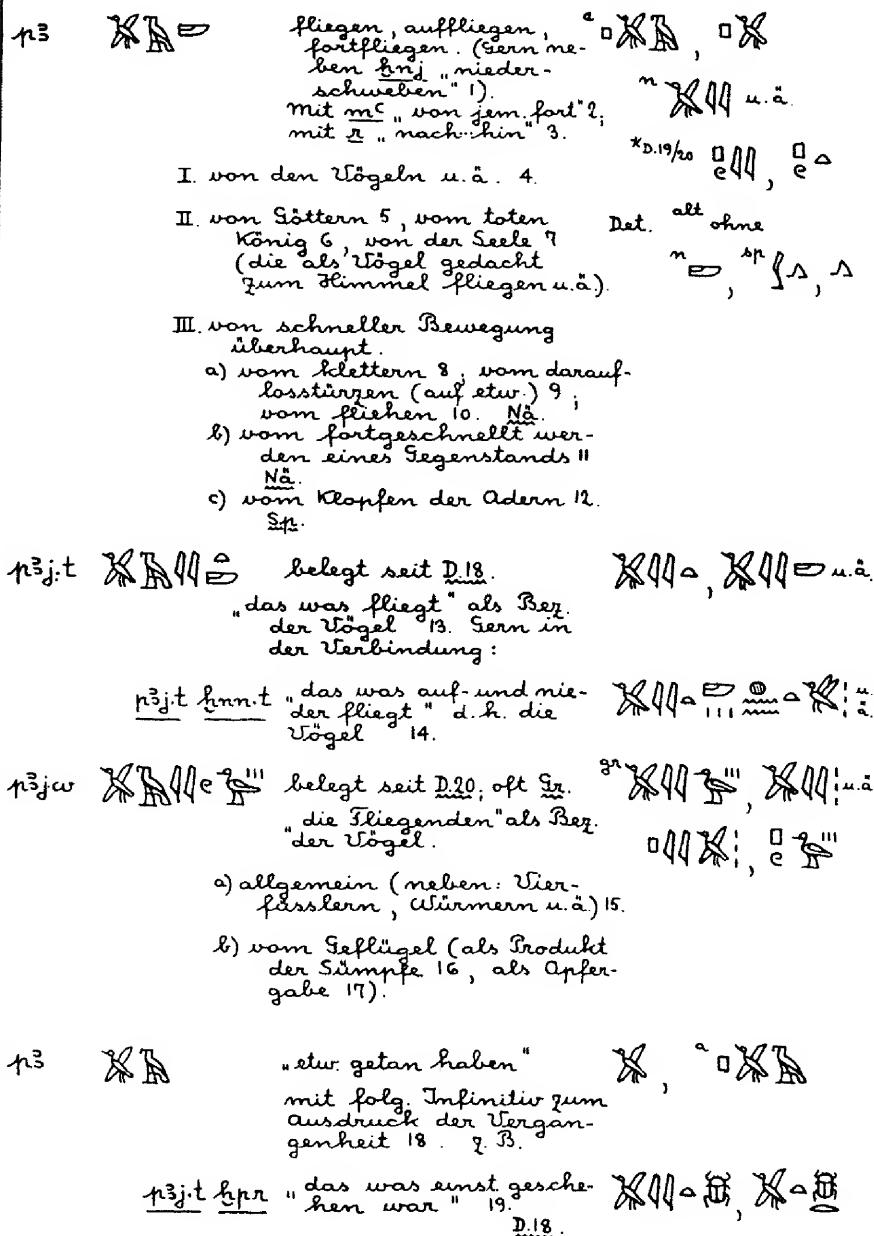 pꜣ 𓅮𓄿𓇯 fliegen, auffliegen, a 𓊪𓅮𓄿, 𓊪𓅮
fortfliegen. (Gern ne-
ben ẖnj „nieder-
schweben" 1). n 𓅮𓇋𓇋 u. ä.
Mit mꜥ „von jem. fort" 2,
mit r „nach..hin" 3.
*D.19/20
I. von den Vögeln u. ä. 4.
II. von Göttern 5, vom toten Det. alt ohne
König 6, von der Seele 7
(die als Vögel gedacht n , sp
zum Himmel fliegen u. ä.).
III. von schneller Bewegung
überhaupt.
a) vom Klettern 8, vom darauf-
losstürzen (auf etw.) 9,
vom fliehen 10. Nä.
b) vom fortgeschnellt wer-
den eines Gegenstands 11
Nä.
c) vom Klopfen der Adern 12.
Sp.
pꜣj.t belegt seit D.18. u. ä.
„das was fliegt" als Bez.
der Vögel 13. Gern in
der Verbindung:
pꜣj.t ẖnn.t „das was auf- und nie- u.
der fliegt" d.h. die ä.
Vögel 14.
pꜣjw belegt seit D.20; oft Gr. gr u. ä
„die Fliegenden" als Bez.
der Vögel.
a) allgemein (neben: Vier-
füsslern, Würmern u. ä.) 15.
b) vom Geflügel (als Produkt
der Sümpfe 16, als Opfer-
gabe 17).
pꜣ 𓅮𓄿 „etw. getan haben" 𓅮, a 𓊪𓅮𓄿
mit folg. Infinitiv zum
Ausdruck der Vergan-
genheit 18. z. B.
pꜣj.t ḫpr „das was einst gesche- 𓅮𓇋𓇋𓏏𓆣, 𓅮𓏏𓆣𓂋
hen war" 19.
D.18.